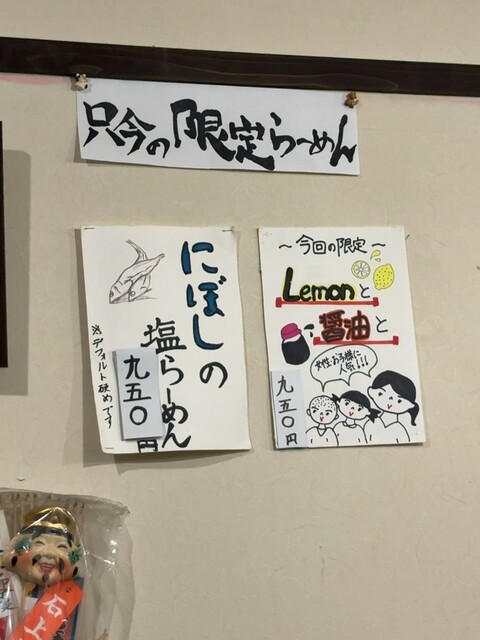 只今の限定らーめん
にぼしの
塩らーめん
九五〇円
※デフォルト硬めです
〜今回の限定〜
Lemonと
醤油と
女性・お子様に
人気!!!
九五〇円
石上